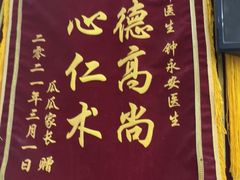 医生 钟永安医生
德高尚
心仁术
瓜瓜家长 赠
二零二一年三月一日